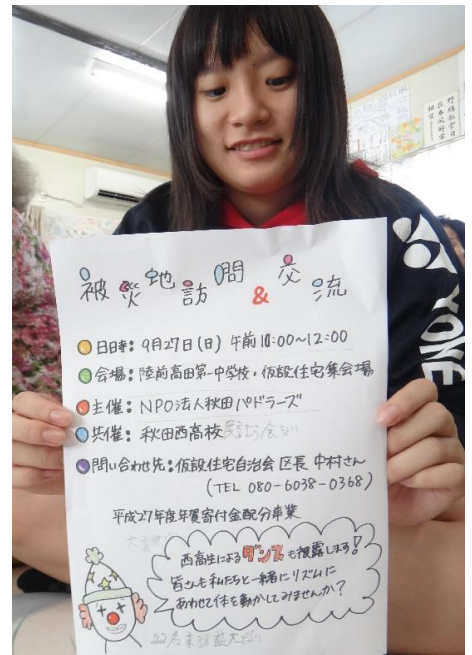 被災地訪問&交流
日時:9月27日(日) 午前10:00~12:00
会場:陸前高田第一中学校・仮設住宅集会場
主催:NPO法人秋田パドラーズ
共催:秋田西高校
問い合わせ先:仮設住宅自治会 区長 中村さん
(TEL 080-6038-0368)
平成27年度年賀寄付金配分事業
西高生によるダンスも披露します!
皆さんも私たちと一緒にリズムに
あわせて体を動かしてみませんか?
YONE